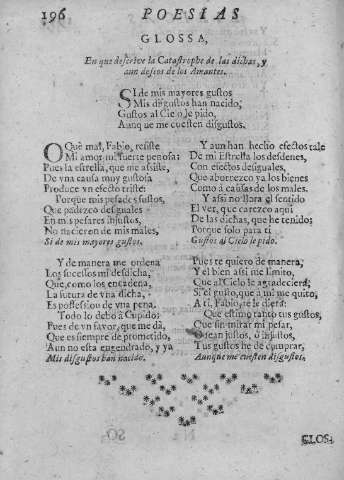 196 POESIAS
GLOSSA,
En que descrive la Catastrophe de las dichas, y
aun deseos de los Amantes.
SI de mis mayores gustos
Mis disgustos han nacido,
Gustos al Cielo pido,
Aunque me cuesten disgustos.
O Què mal, Fabio, resiste
Mi amor mi suerte penosa;
Pues la estrella, que me assiste,
De vna causa muy gustosa
Produce vn efecto triste:
Porque mis pesades sustos,
Que padezco desiguales
En mis pesares injustos,
No nacieron de mis males,
Si de mis mayores gustos.
Y de manera me ordena
Los sucessos mi desdicha,
Que, como los encadena,
La sutura de vna dicha,
Es possession de vna pena.
Todo lo debo à Cupido;
Pues de vn favor, que me dà,
Que es siempre de prometido,
Aun no està engendrado, y ya
Mis disgustos han nacido.
Y aun han hecho efectos tales
De mi Estrella los desdenes,
Con efectos desiguales,
Que aborrezco ya los bienes
Como à causas de los males.
Y assi no llora el sentido
El ver, que carezco aqui
De las dichas, que he tenido;
Porque solo para ti
Gustos al Cielo le pido.
Pues te quiero de manera,
Y el bien assi me limito,
Que al Cielo le agradeciera,
Si el gusto, que à mi me quito,
A ti, Fabio, te le diera:
Que estimo tanto tus gustos,
Que sin mirar mi pesar,
O sean justos, ò injustos,
Tus gustos he de comprar,
Aunque me cuesten disgustos.
GLOS-